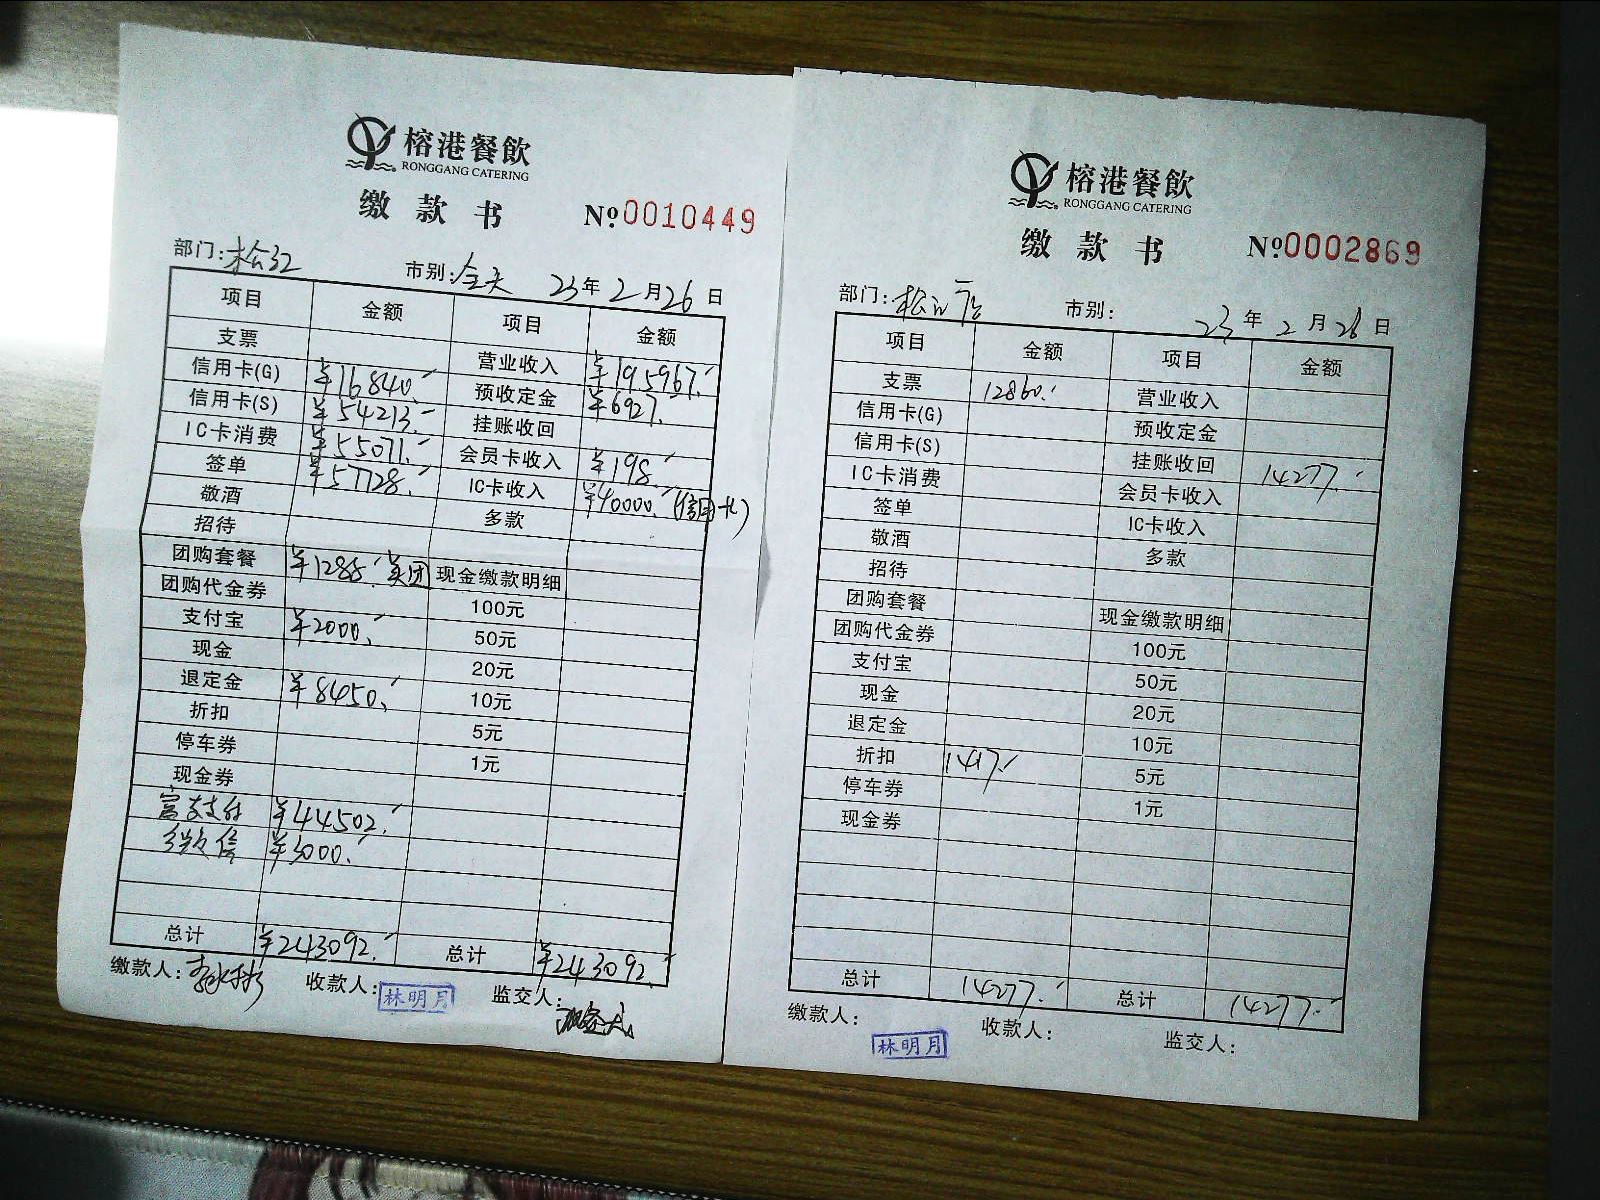 榕港餐飲
RONGGANG CATERING
缴款书 №0010449
部门:松江 市别:全天 23年2月26日
项目 金额 项目 金额
支票 营业收入 ¥195967.
信用卡(G) ¥16840. 预收定金 ¥6927.
信用卡(S) ¥54213. 挂账收回
IC卡消费 ¥55071. 会员卡收入 ¥198
签单 ¥57728. IC卡收入 ¥40000.(信用卡)
敬酒 多款
招待
团购套餐 ¥1288.美团 现金缴款明细
团购代金券 100元
支付宝 ¥2000. 50元
现金 20元
退定金 ¥8450. 10元
折扣 5元
停车券 1元
现金券
富支付 ¥44502.
微信 ¥3000.
总计 ¥243092. 总计 ¥243092.
缴款人: 收款人:林明月 监交人:
榕港餐飲
RONGGANG CATERING
缴款书 №0002869
部门:松江 市别: 23年2月26日
项目 金额 项目 金额
支票 12860. 营业收入
信用卡(G) 预收定金
信用卡(S) 挂账收回 14277.
IC卡消费 会员卡收入
签单 IC卡收入
敬酒 多款
招待
团购套餐 现金缴款明细
团购代金券 100元
支付宝 50元
现金 20元
退定金 10元
折扣 1417. 5元
停车券 1元
现金券
总计 14277. 总计 14277.
缴款人: 林明月 收款人: 监交人: